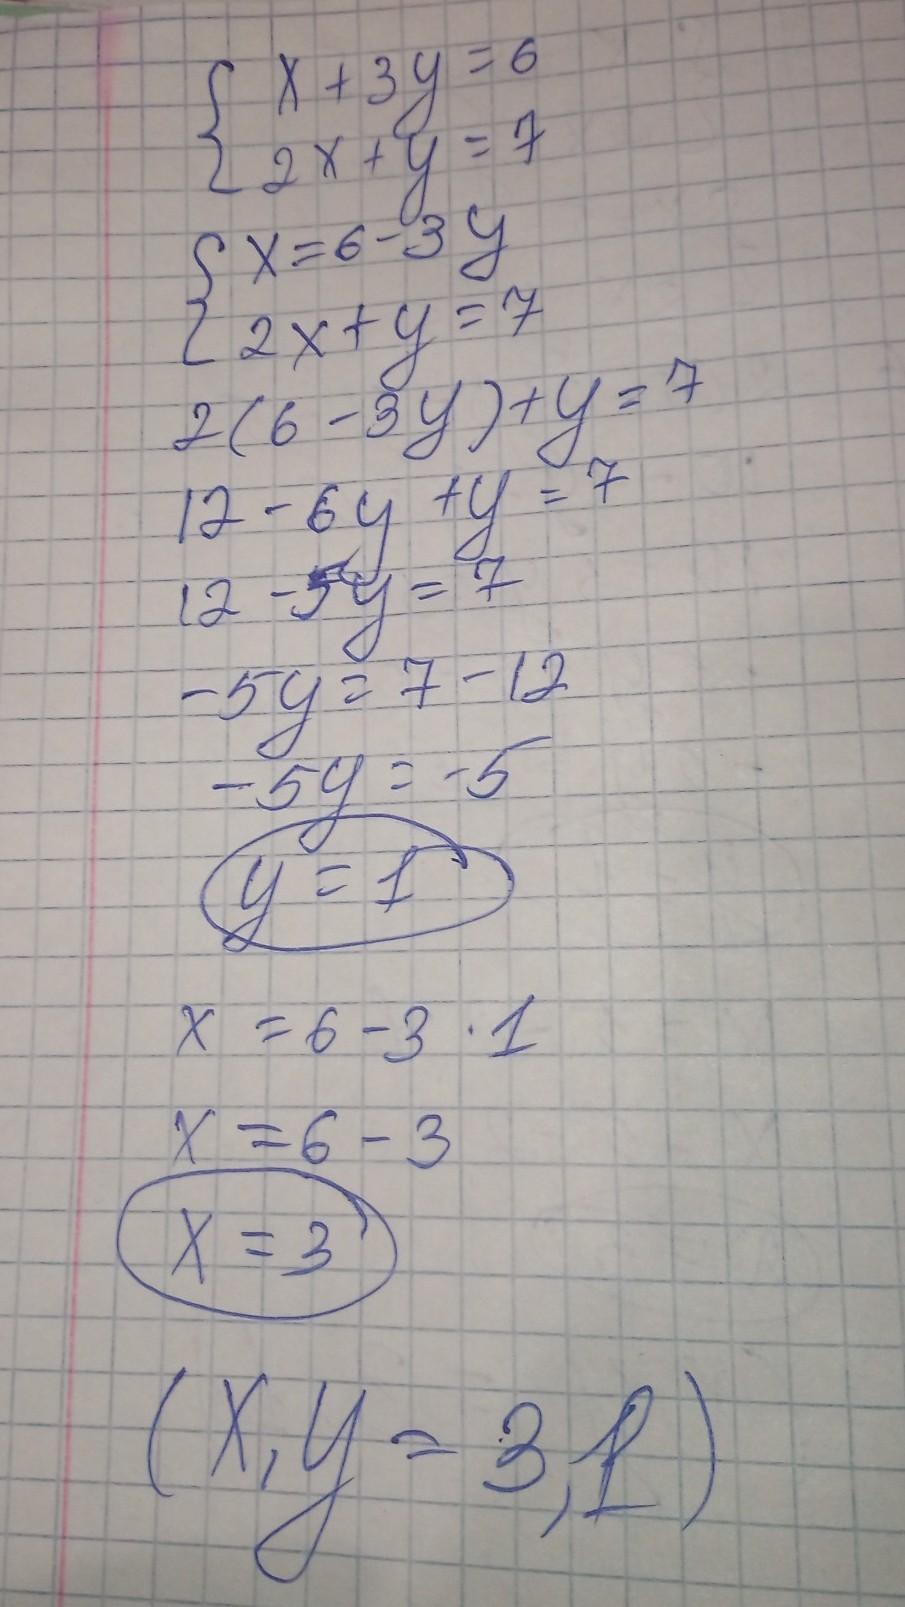 { x + 3y = 6
2x + y = 7
{ x = 6 - 3y
2x + y = 7
2(6 - 3y) + y = 7
12 - 6y + y = 7
12 - 5y = 7
-5y = 7 - 12
-5y = -5
y = 1
x = 6 - 3 · 1
x = 6 - 3
x = 3
(x, y = 3, 1)